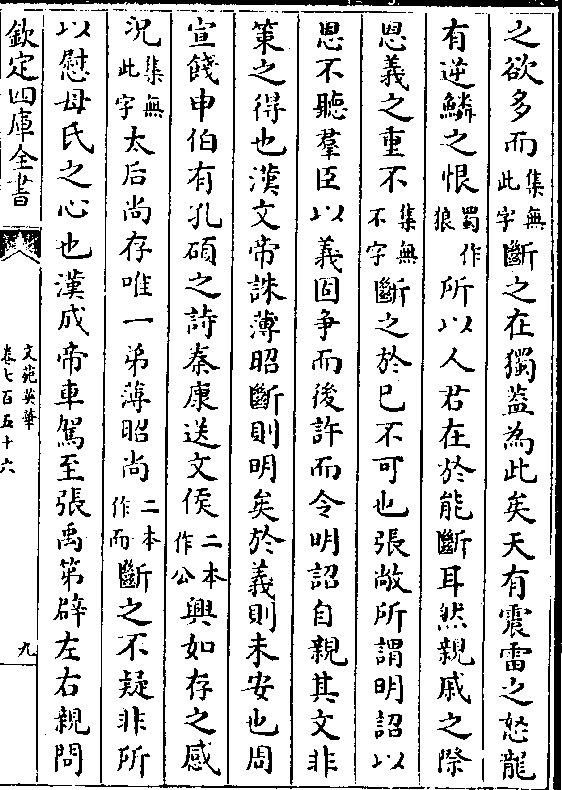 之欲多而集無此字斷之在獨蓋為此矣天有震雷之怒龍
有逆鱗之恨蜀作狼所以人君在於能斷耳然親戚之際
恩義之重不集無不字斷之於已不可也張敞所謂明詔以
恩不聽羣臣以義固争而後許而令明詔自親其文非
策之得也漢文帝誅薄昭斷則明矣於義則未安也周
宣餞申伯有孔碩之詩秦康送文侯二本作公興如存之感
况集無此字太后尚存唯一弟薄昭尚二本作而斷之不疑非所
以慰母氏之心也漢成帝車駕至張禹第辟左右親問
欽定四庫全書
文苑英華
卷七百五十六
九